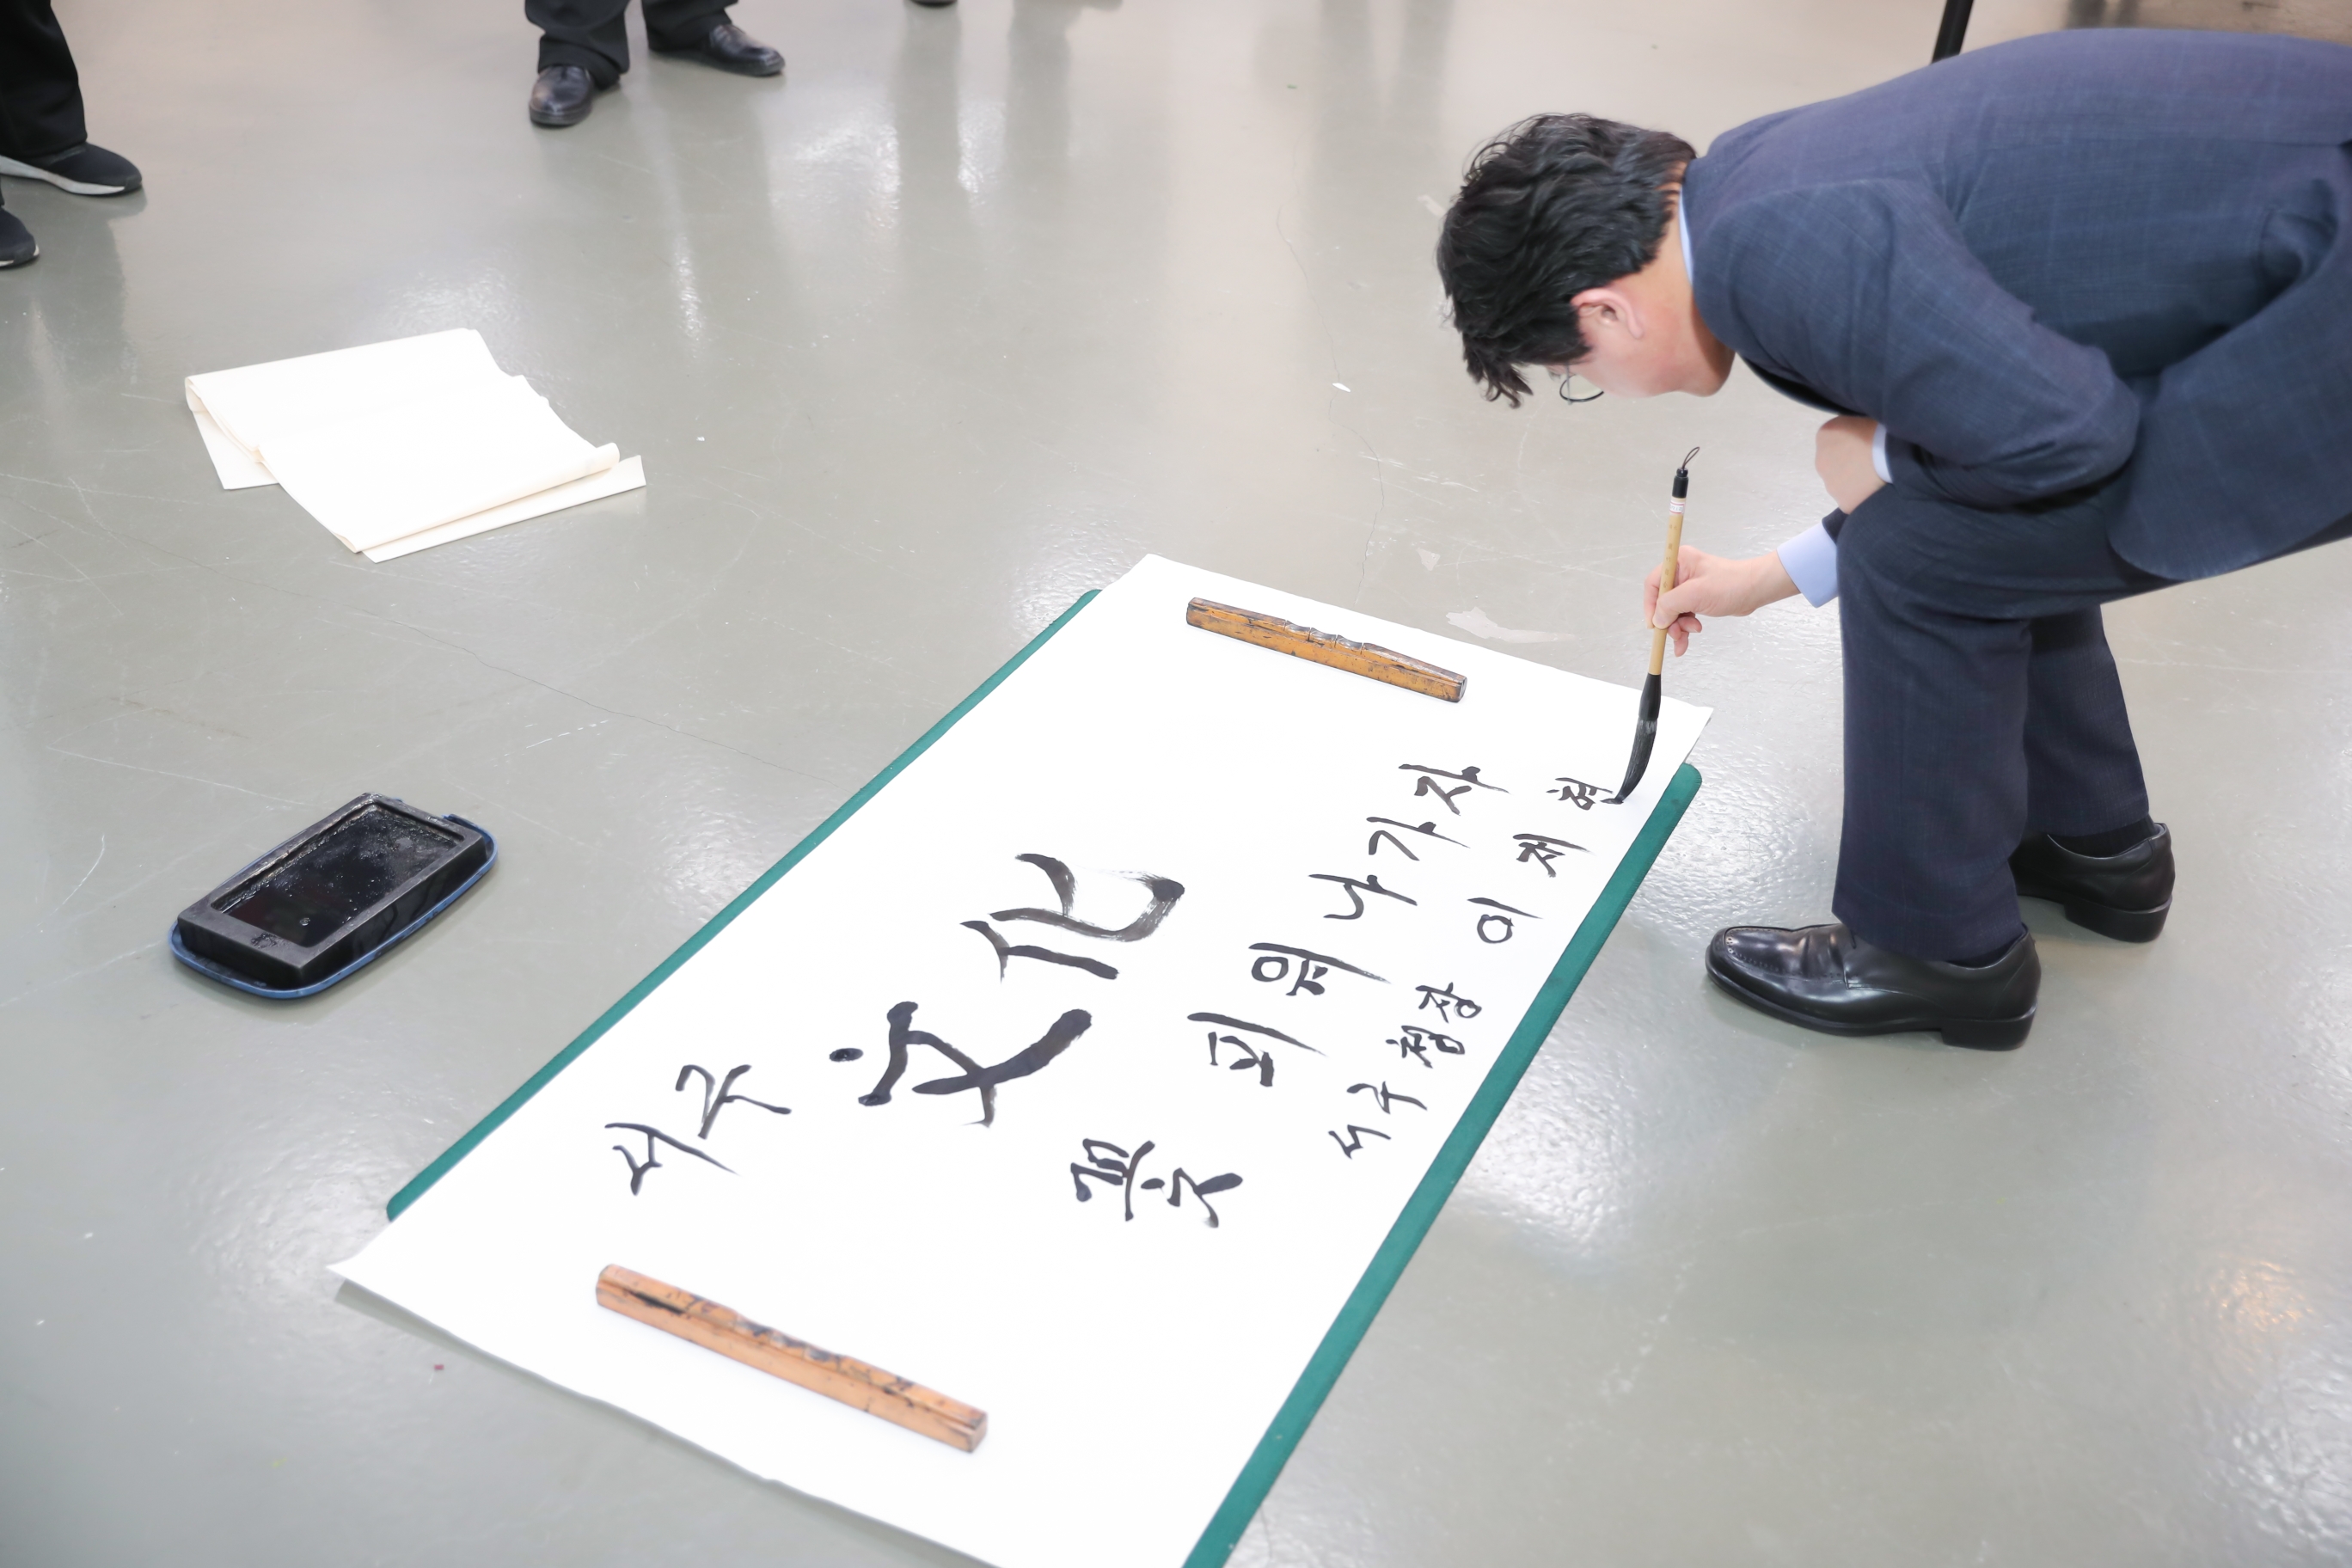 서구 文化
꽃 피워 나가자
서구청장 이재현